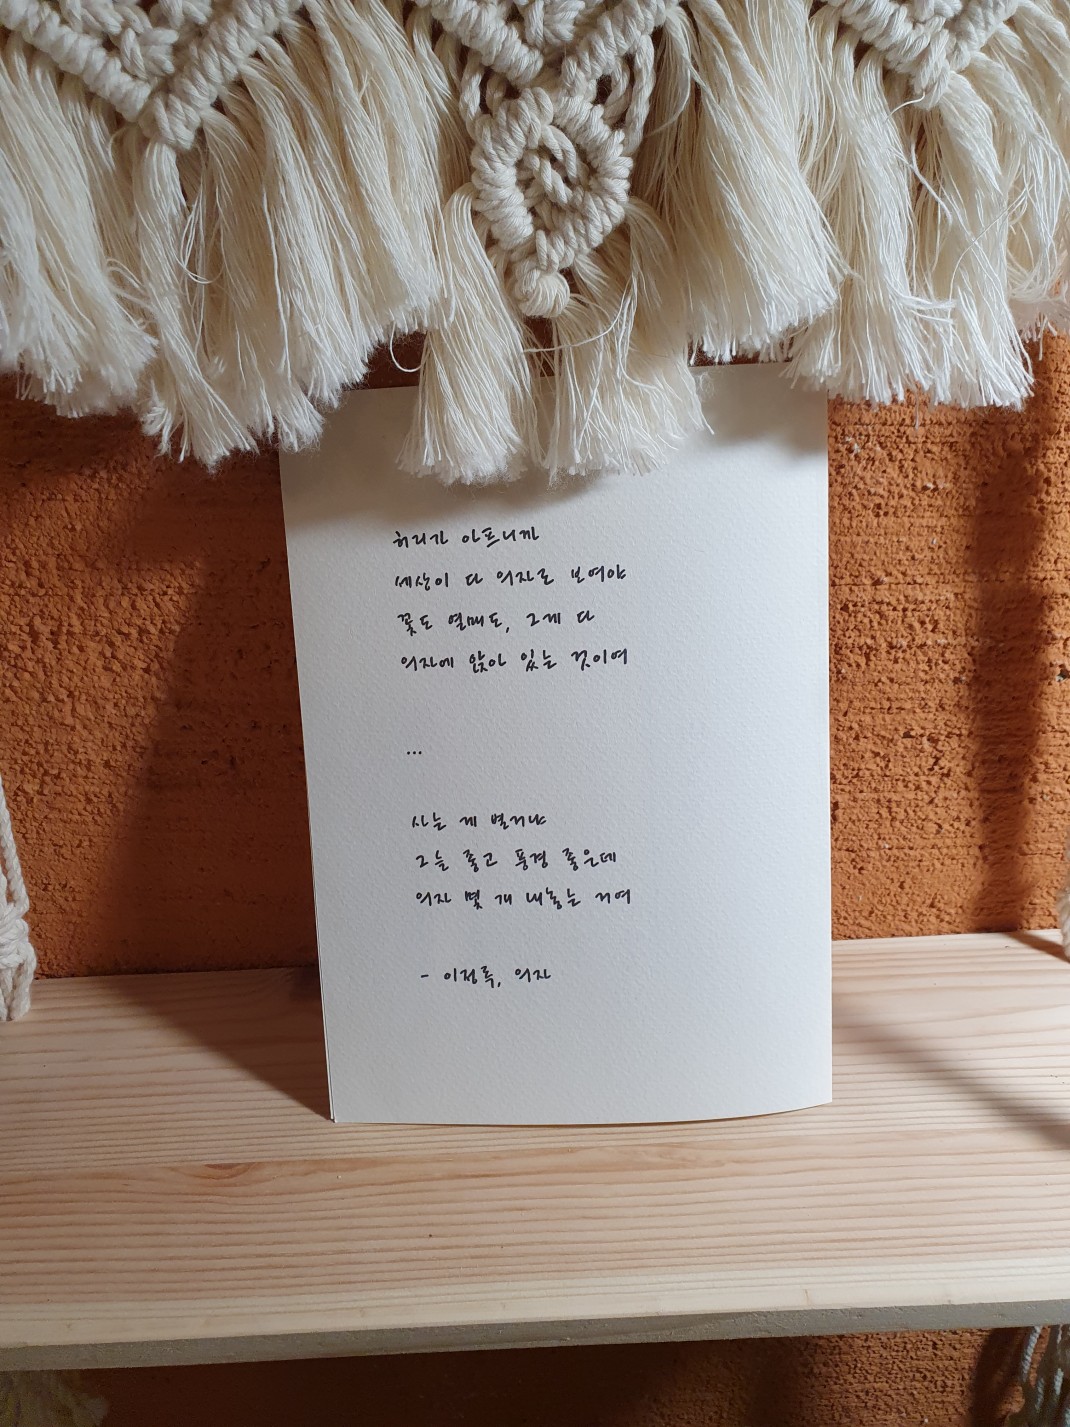 허리가 아프니까
세상이 다 의자로 보여야
꽃도 열매도, 그게 다
의자에 앉아 있는 것이여
...
사는 게 별거냐
그늘 좋고 풍경 좋은데
의자 몇 개 내놓는 거여
- 이정록, 의자